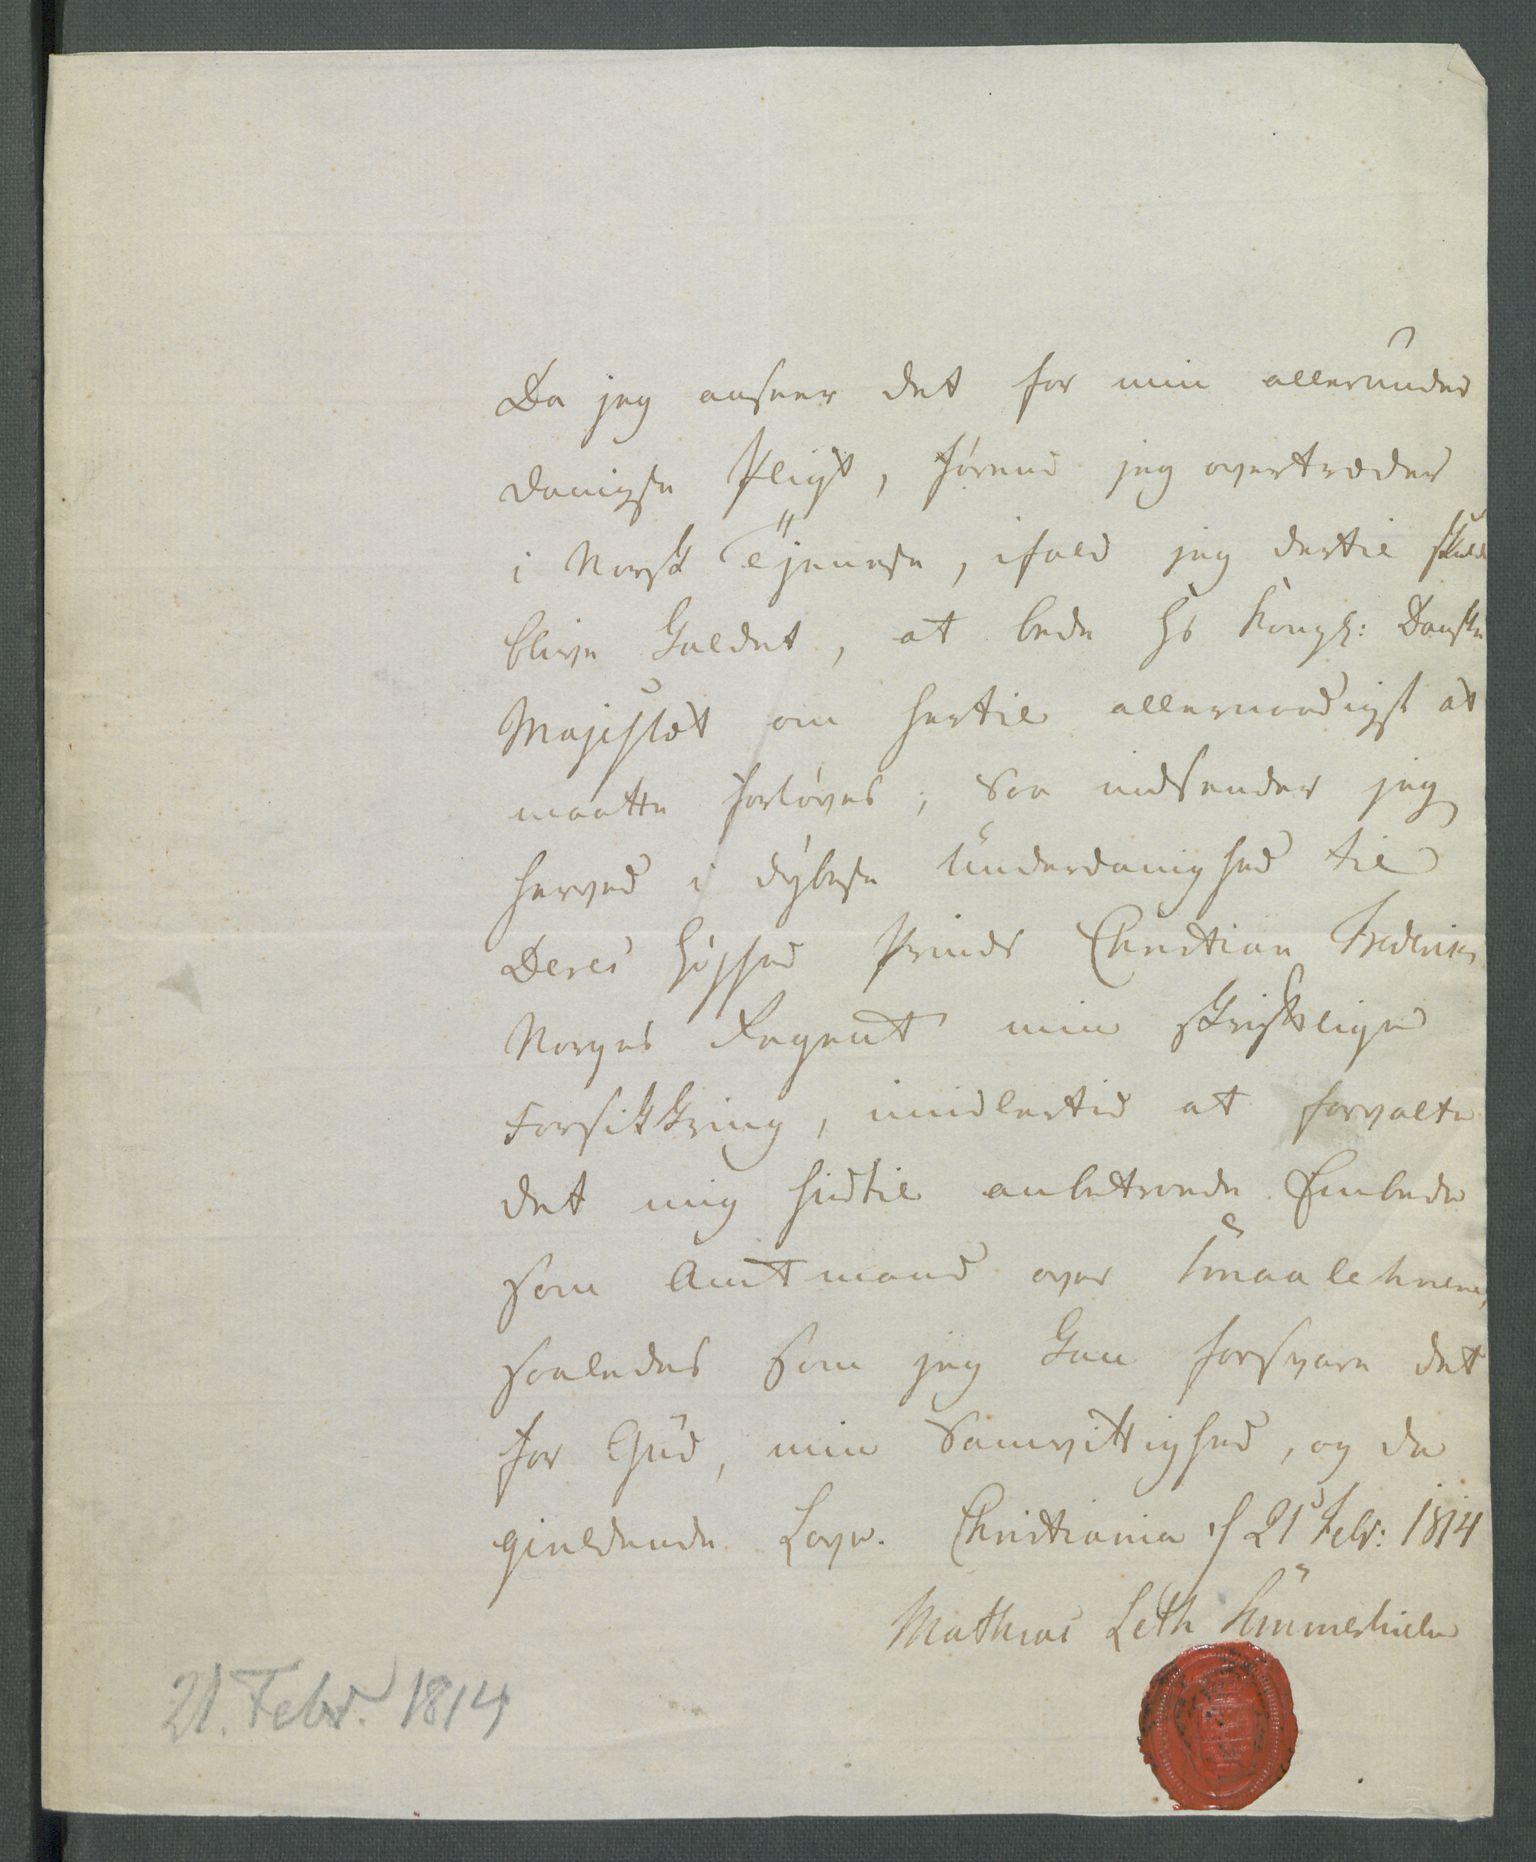 Da jeg anseer det for min allerunder
danigste Pligt, förend jeg overtræder
i Norsk Tjeneste, ifald jeg dertil skulde
blive Kaldet, at bede Hs Kongl: Danske
Majestæt om hertil allernaadigst at
maatte forløves; saa indsender jeg
herved i dybeste Underdanighed til
Deres Højhed Prinds Christian Frederik
Norges Regent min skriftlige
Forsikkring, imidlertid at forvalte
det mig hidtil anbetroede Embede
som Amtmand over Smaalehnene,
saaledes som jeg kan forsvare det
for Gud, min Samvittighed, og de
gieldende Love. Christiania d 21 Febr: 1814
Mathias Leth Sommerhielm
21. Febr. 1814